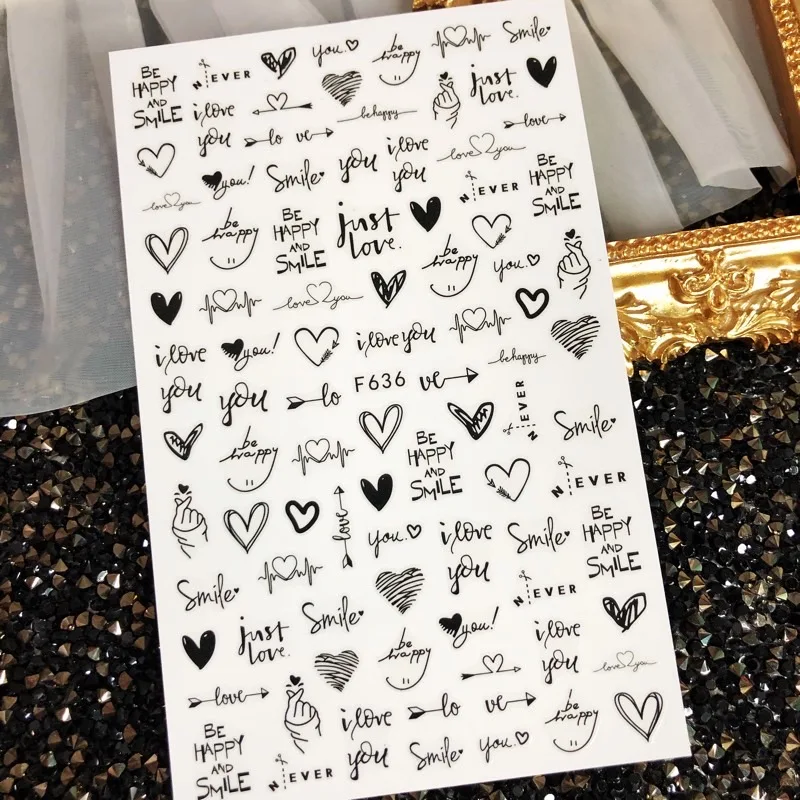 BE
HAPPY
AND
SMILE
NEVER
you.
be
happy
Smile
i love
you
be happy
just
love.
lo ve
love
you!
Smile
you
i love
you
love you
NEVER
BE
HAPPY
AND
SMILE
love you
be
happy
BE
HAPPY
AND
SMILE
just
love.
be
happy
you.
love you
i love
you
you!
i love you
be happy
you
lo
F636
ve
NEVER
Smile
be
happy
BE
HAPPY
AND
SMILE
NEVER
love
you.
i love
you
Smile
BE
HAPPY
AND
SMILE
Smile
NEVER
just
love.
Smile
be
happy
you!
i love
you
love you
love
i love
you
lo
ve
be
happy
BE
HAPPY
AND
SMILE
NEVER
Smile
you.